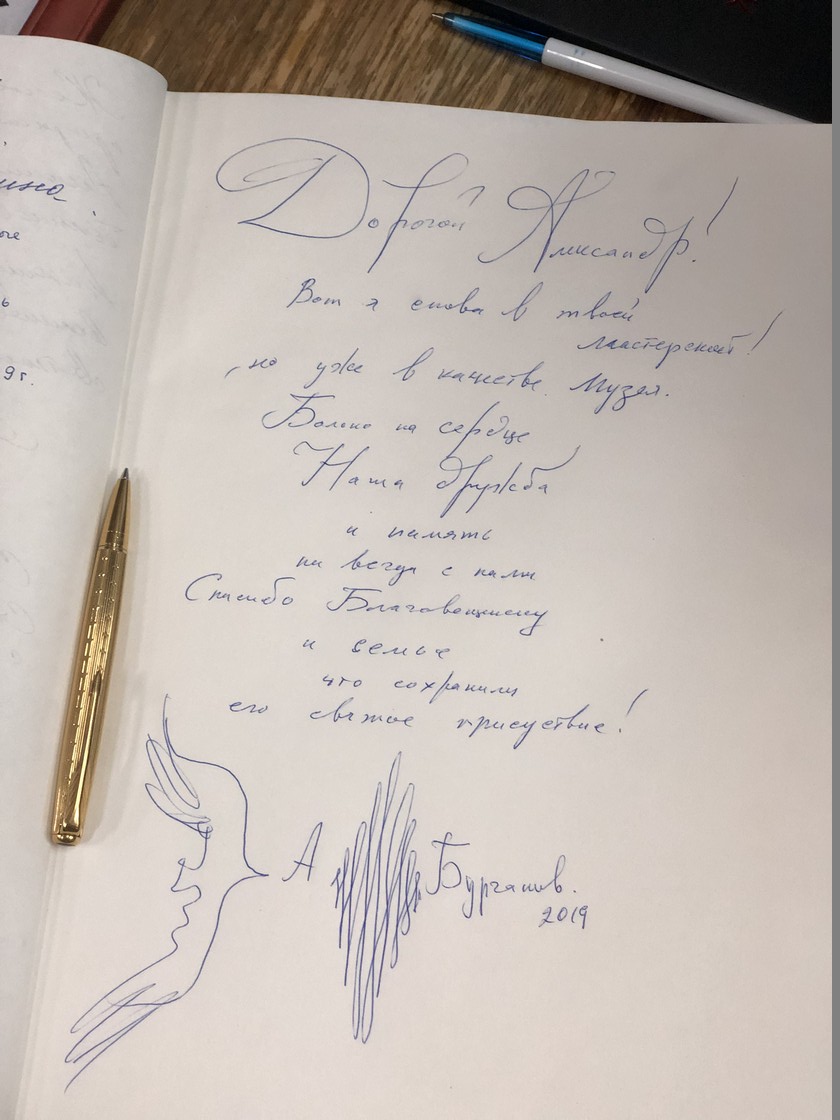 Дорогой Александр!
Вот я снова в твоей
мастерской!
, но уже в качестве Музея.
Больно на сердце
Наша дружба
и память
на всегда с нами
Спасибо Благовещенскому
и семье
что сохранили
его святое присуствие!
А Бурганов.
2019
9 г.